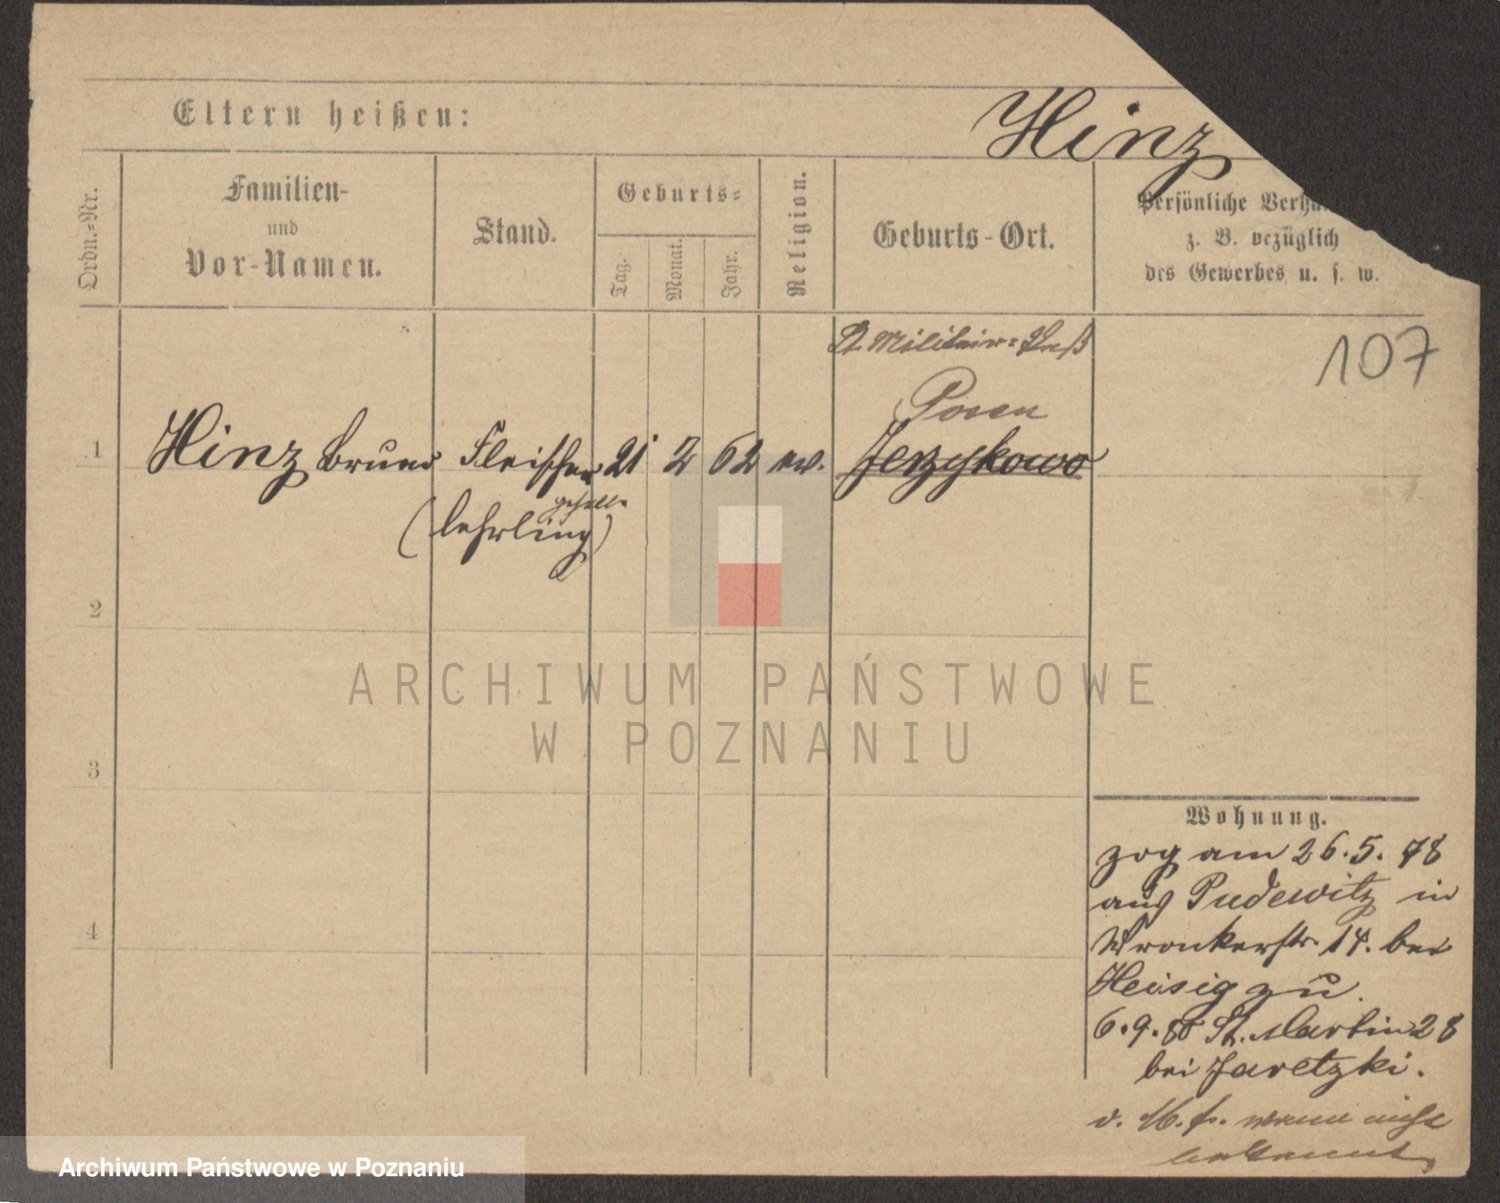 Eltern heißen:
Hinz
Ordn.-Nr.
Familien-
und
Vor-Namen.
Stand.
Geburts-
Tag.
Monat.
Jahr.
Religion.
Geburts-Ort.
Persönliche Verhä
z. B. bezüglich
des Gewerbes u. s. w.
107
lt. Militair-Paß
Posen
1 Hinz Bruno Fleischer 21 2 62 ev. Jerzykowo
gesell
(lehrling)
2
ARCHIWUM PAŃSTWOWE
W POZNANIU
3
Wohnung.
zog am 26.5.78
aus Pudewitz in
4
Wronkerstr. 14. bei
Heisig zu.
6.9.80 St. Martin 28
bei Jaretzki.
wann nicht
bekannt
Archiwum Państwowe w Poznaniu